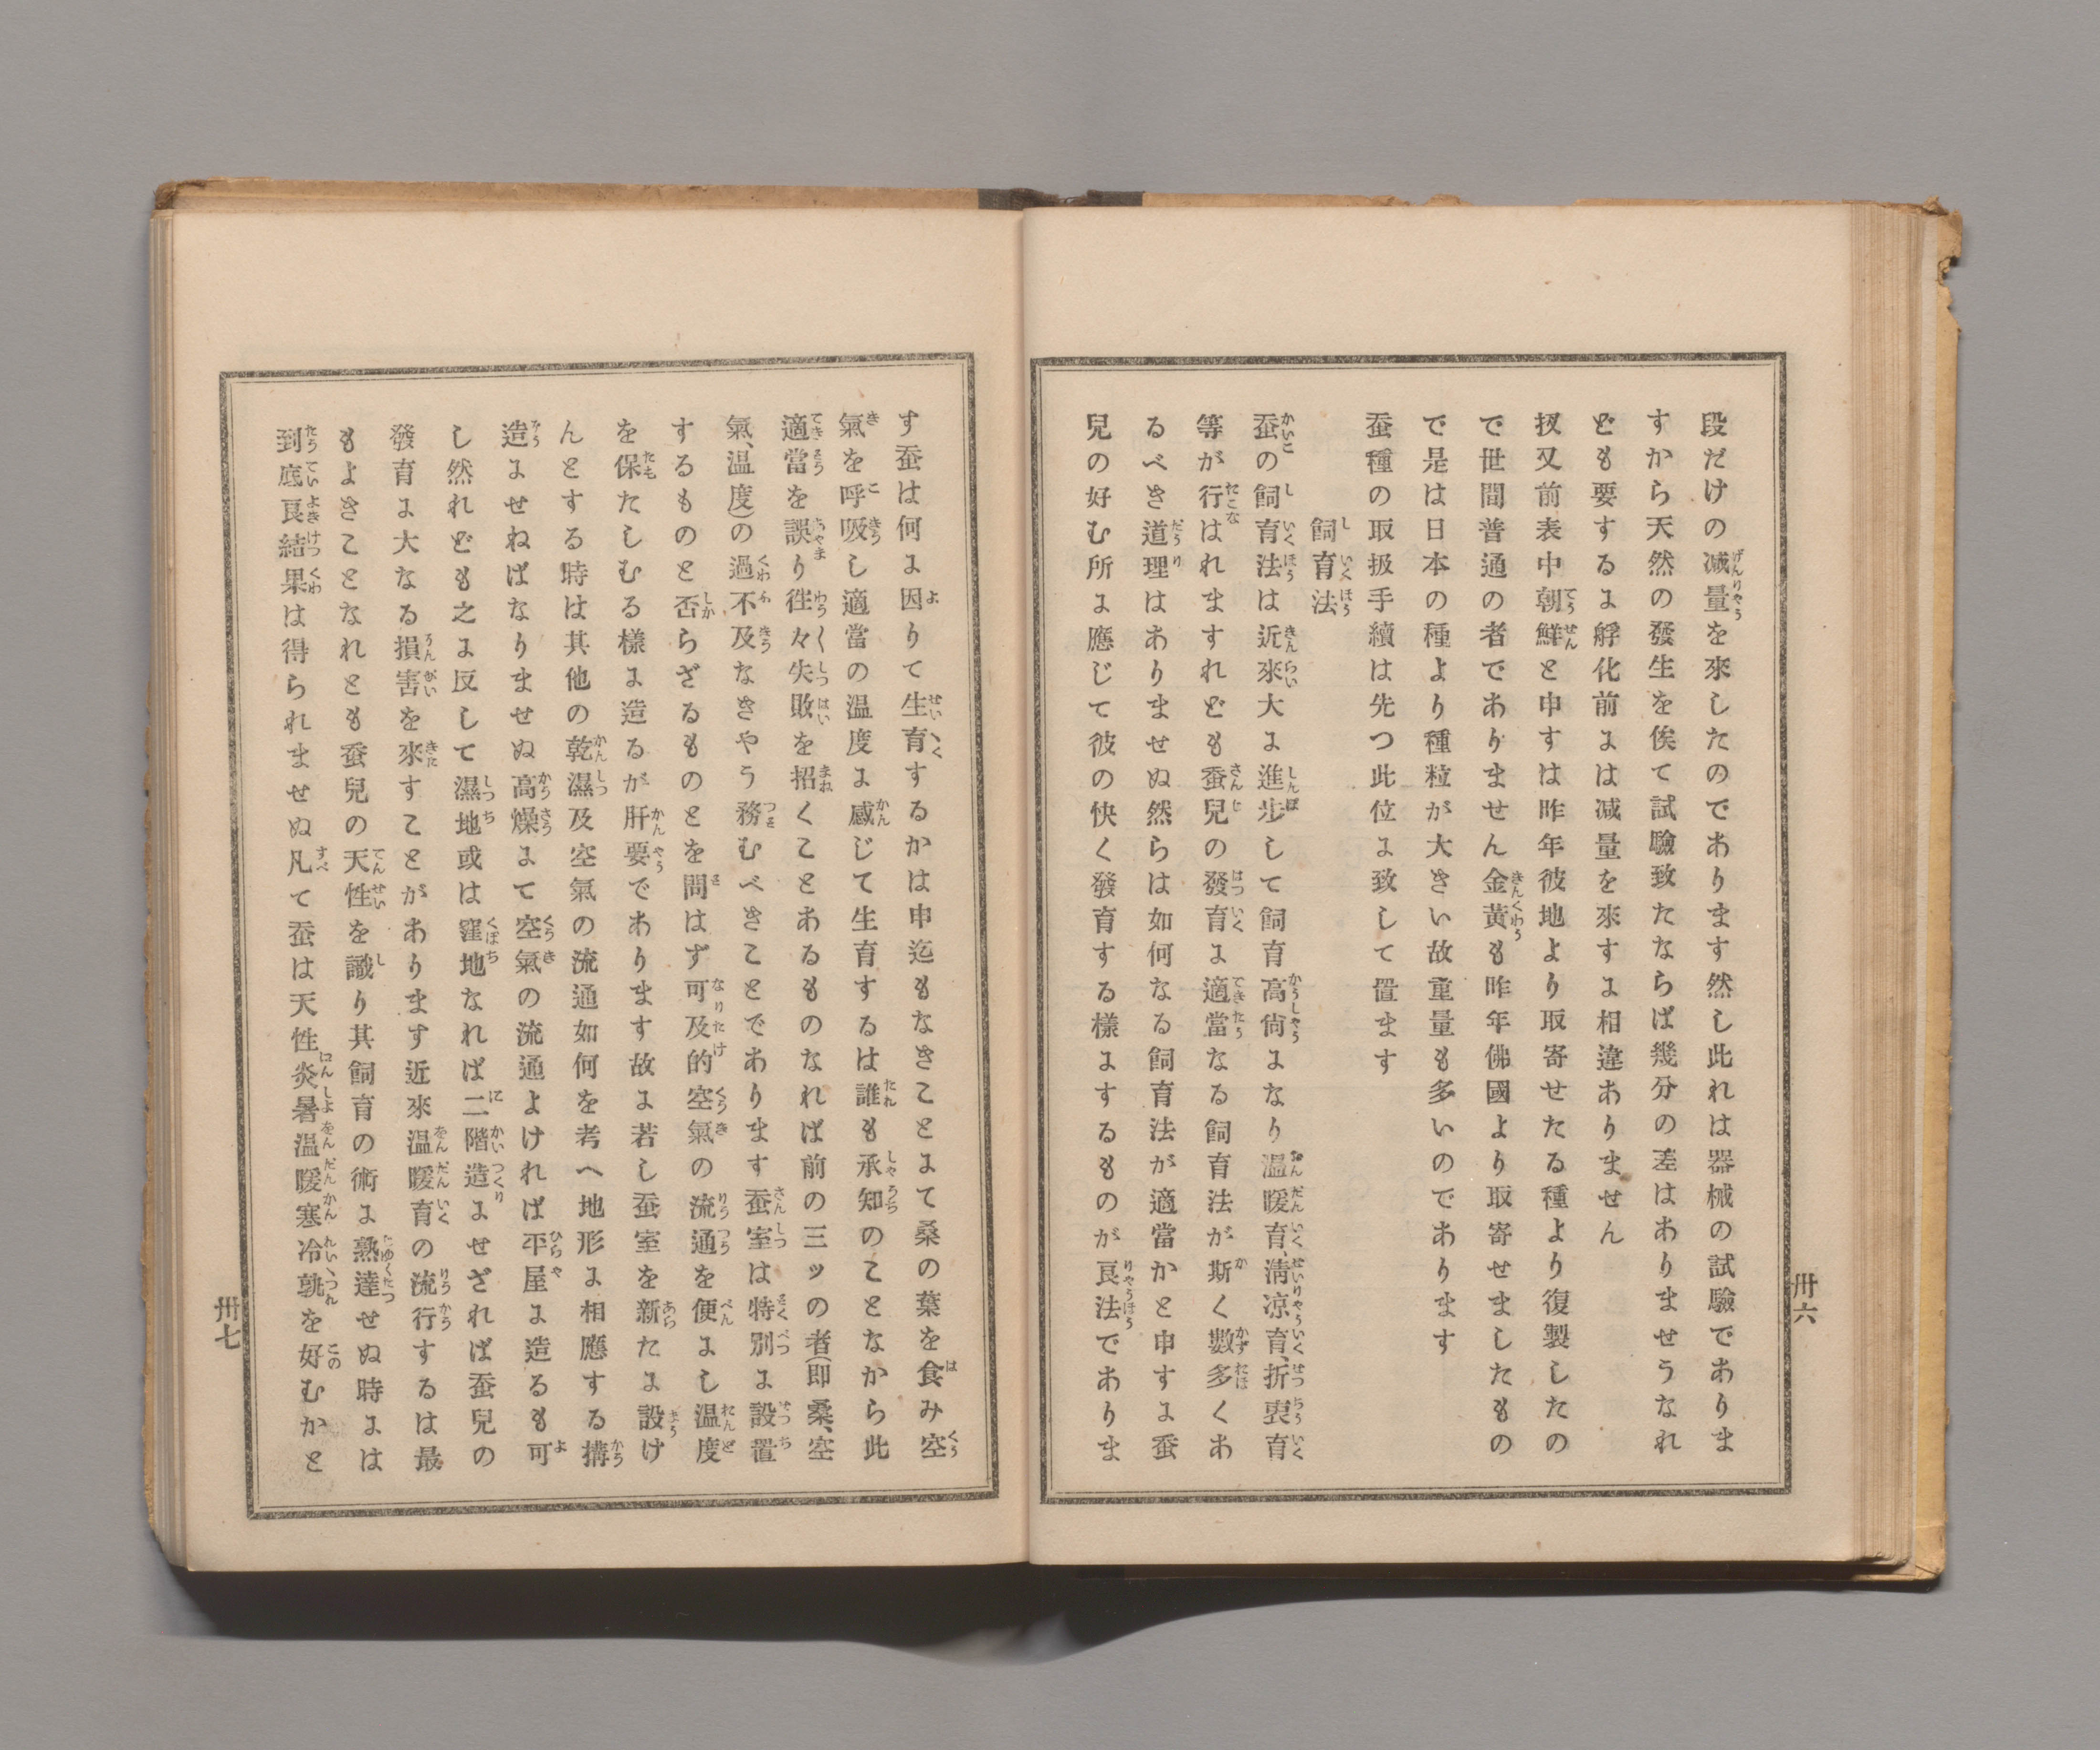 段だけの減量を來したのであります然し此れは器械の試驗でありま
すから天然の發生を俟て試驗致たならば幾分の差はありませうなれ
ども要するに孵化前には減量を來すに相違ありません
扨又前表中朝鮮と申すは昨年彼地より取寄せたる種より復製したの
で世間普通の者でありません金黄も昨年佛國より取寄せましたもの
で是は日本の種より種粒が大きい故重量も多いのであります
蚕種の取扱手續は先つ此位に致して置ます
飼育法
蚕の飼育法は近來大に進歩して飼育高尙になり温暖育、淸凉育、折衷育
等が行はれますれども蚕兒の發育に適當なる飼育法が斯く數多くあ
るべき道理はありませぬ然らは如何なる飼育法が適當かと申すに蚕
兒の好む所に應じて彼の快く發育する樣にするものが良法でありま
卅六
す蚕は何に因りて生育するかは申迄もなきことにて桑の葉を食み空
氣を呼吸し適當の温度に感じて生育するは誰も承知のことなから此
適當を誤り徃々失敗を招くことあるものなれば前の三ッの者(即桑、空
氣、温度)の過不及なきやう務むべきことであります蚕室は特別に設置
するものと否らざるものとを問はず可及的空氣の流通を便にし温度
を保たしむる樣に造るが肝要であります故に若し蚕室を新たに設け
んとする時は其他の乾濕及空氣の流通如何を考へ地形に相應する搆
造にせねばなりませぬ高燥にて空氣の流通よければ平屋に造るも可
し然れども之に反して濕地或は窪地なれば二階造にせざれば蚕兒の
發育に大なる損害を來すことがあります近來温暖育の流行するは最
もよきことなれとも蚕兒の天性を識り其飼育の術に熟達せぬ時には
到底良結果は得られませぬ凡て蚕は天性炎暑温暖寒冷孰を好むかと
卅七